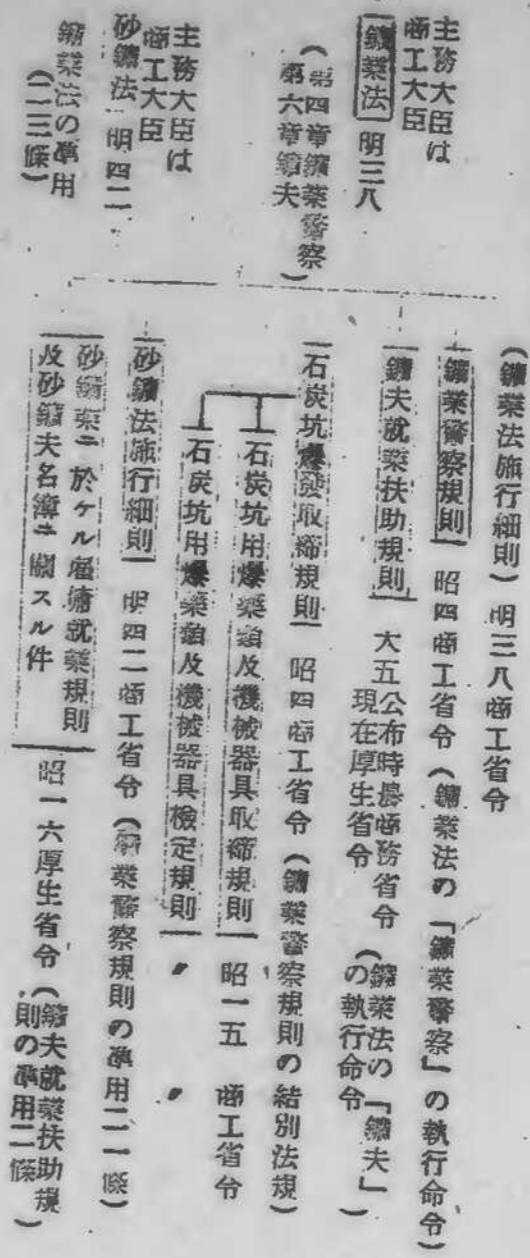 主務大臣は
商工大臣
鑛業法 明三八
(第四章鑛業警察
第六章鑛夫)
主務大臣は
商工大臣
砂鑛法 明四二
鑛業法の準用
(二三條)
(鑛業法施行細則) 明三八商工省令
鑛業警察規則 昭四商工省令(鑛業法の「鑛業警察」の執行命令)
鑛夫就業扶助規則 大五公布時農商務省令
現在厚生省令
(鑛業法の「鑛夫」
の執行命令)
石炭坑爆發取締規則 昭四商工省令(鑛業警察規則の結別法規)
石炭坑用爆藥類及機械器具取締規則 昭一五 商工省令
石炭坑用爆藥類及機械器具檢定規則 〃 〃
砂鑛法施行細則 明四二商工省令(鑛業警察規則の準用二一條)
砂鑛業ニ於ケル雇傭就業規則
及砂鑛夫名簿ニ關スル件
昭一六厚生省令(鑛夫就業扶助規
則の準用二條)